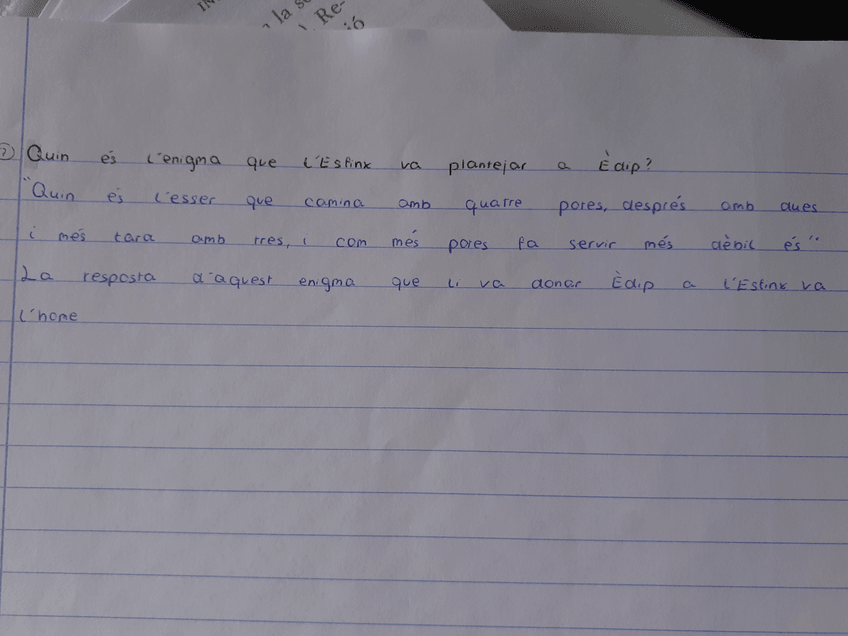 la se
l. Re-
ió
? Quin és l'enigma que l'Esfinx va plantejar a Èdip?
"Quin és l'esser que camina amb quatre potes, després amb dues
i més tard amb tres, i com més potes fa servir més dèbil és"
La resposta d'aquest enigma que li va donar Èdip a l'Esfinx va
l'home